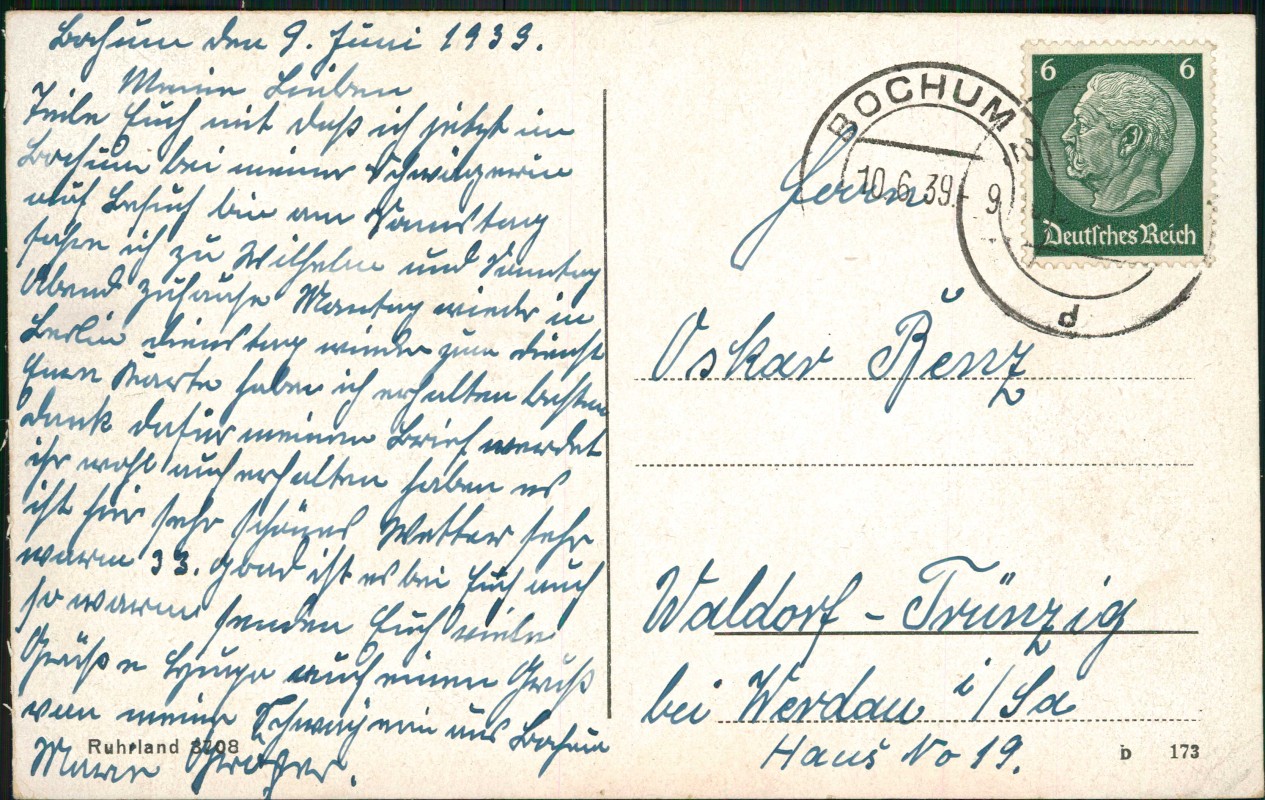 Bochum den 9. Juni 1939.
Meine Lieben
Teile Euch mit daß ich jetzt in
Bochum bei meiner Schwägerin
auf Besuch bin am Samstag
fahre ich zu Wilhelm und Sonntag
Abend zuhause Montag wieder in
Berlin Dienstag wieder zum Dienst
Euere Karte habe ich erhalten besten
Dank dafür meinen Brief werdet
ihr wohl auch erhalten haben es
ist hier sehr schönes Wetter sehr
warm 33. Grad ist es bei Euch auch
so warm senden Euch viele
Grüße auch einen Gruß
von meine Schwägerin aus Bochum
BOCHUM 5
10.6.39.-9
d
6 6
Deutsches Reich
Herrn
Oskar Renz
Waldorf - Trünzig
bei Werdau i/Sa
Haus No 19.
Ruhrland 3708
b 173